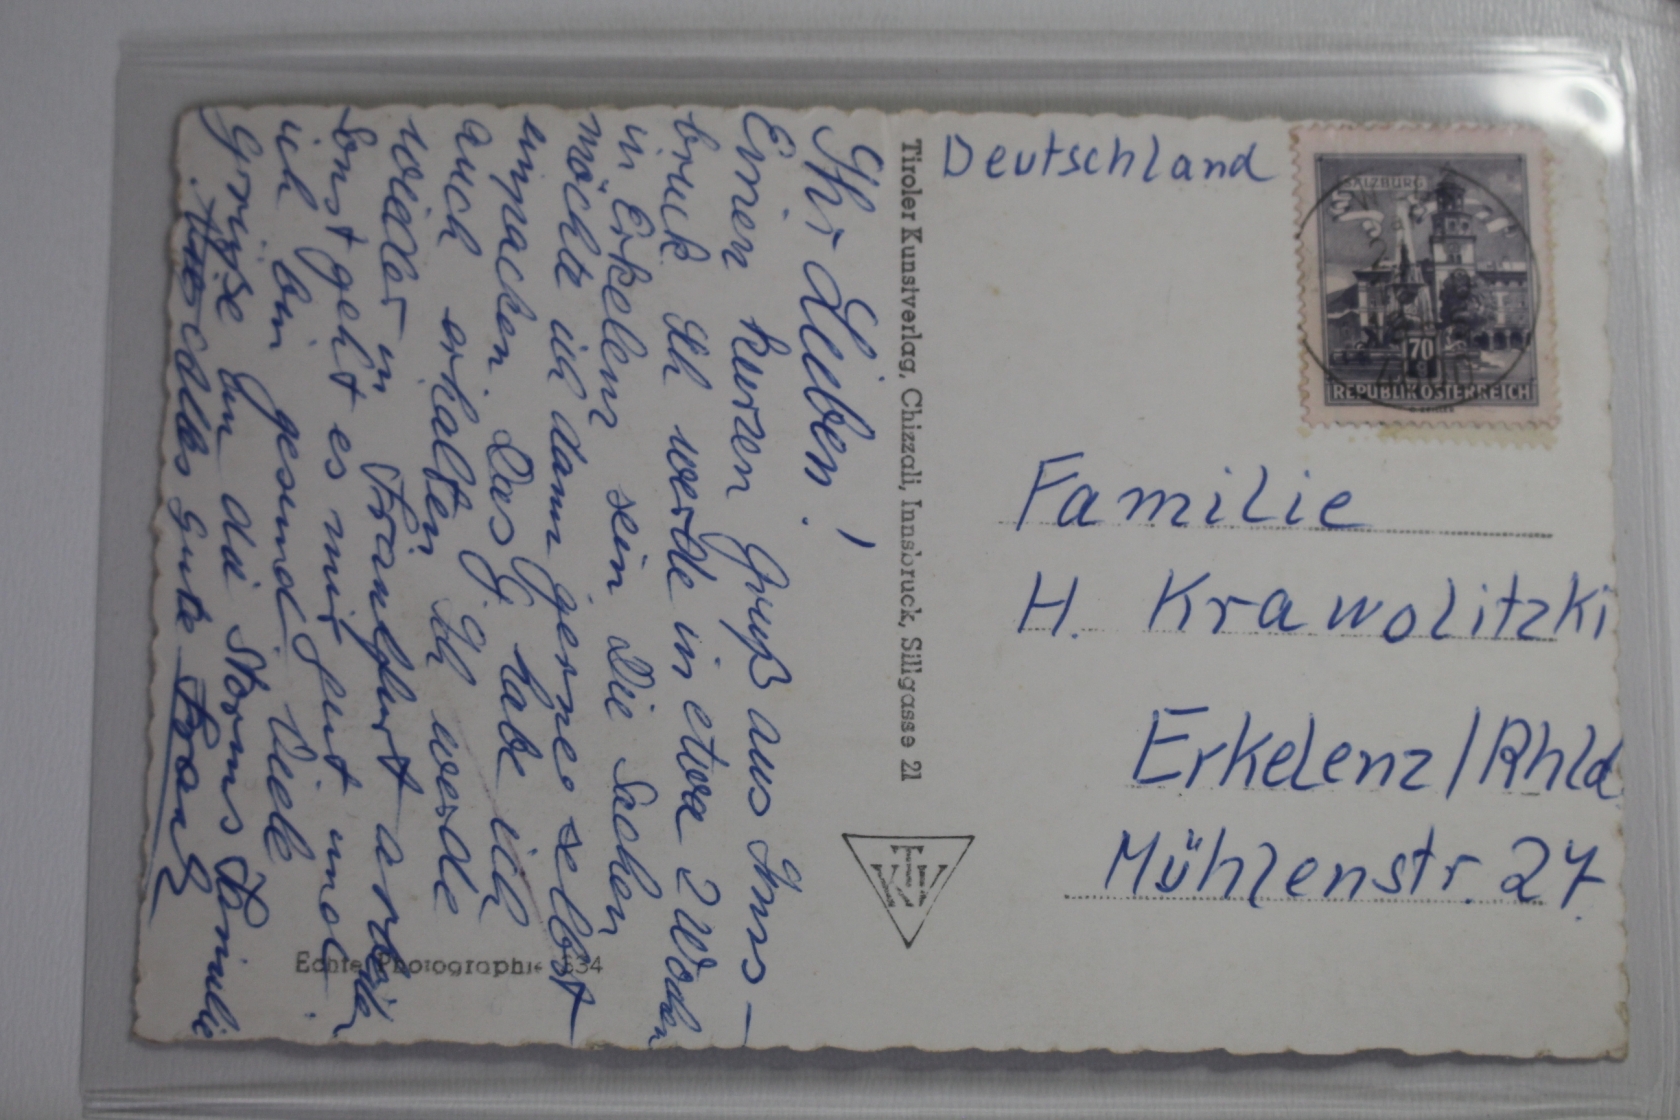 Ihr Lieben!
Einen kurzen Gruß aus Inns-
bruck. Ich werde in etwa 2 Wochen
in Erkelenz sein. Die Sachen
möchte ich dann gerne selbst
einpacken. Das G. habe ich
auch erhalten. Ich werde
wieder in Frankfurt arbeiten
Sonst geht es mir gut und
ich bin gesund. Viele
Grüße an die Storms Familie
Alles Gute Franz
Tiroler Kunstverlag, Chizzali, Innsbruck, Sillgasse 21
TKV
Echte Photographie 634
Deutschland
SALZBURG
70
REPUBLIK ÖSTERREICH
Familie
H. Krawolitzki
Erkelenz/Rhld
Mühlenstr. 27.